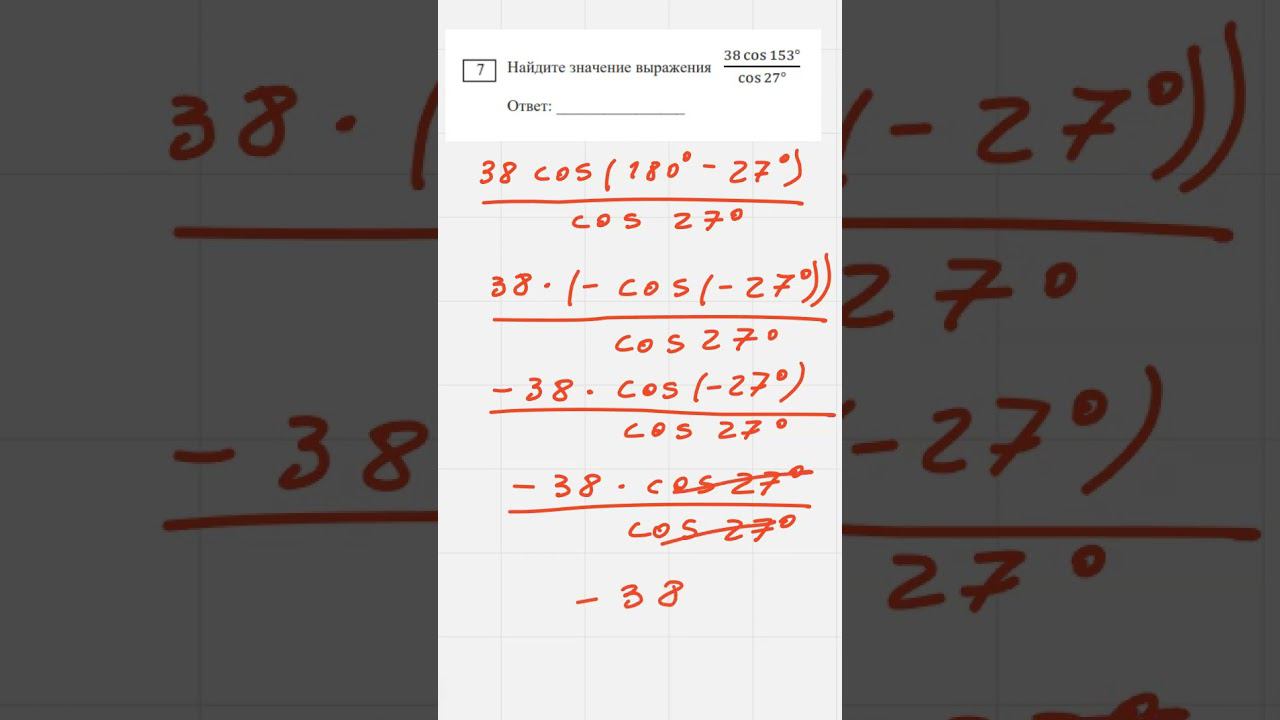 7 Найдите значение выражения 38 cos 153°
cos 27°
Ответ:
38 cos(180° - 27°)
cos 27°
38·(- cos(-27°))
cos 27°
- 38 · cos(-27°)
cos 27°
- 38 · cos 27°
cos 27°
- 38
38 · (
(- 27°))
27°
- 38
(-27°)
27°